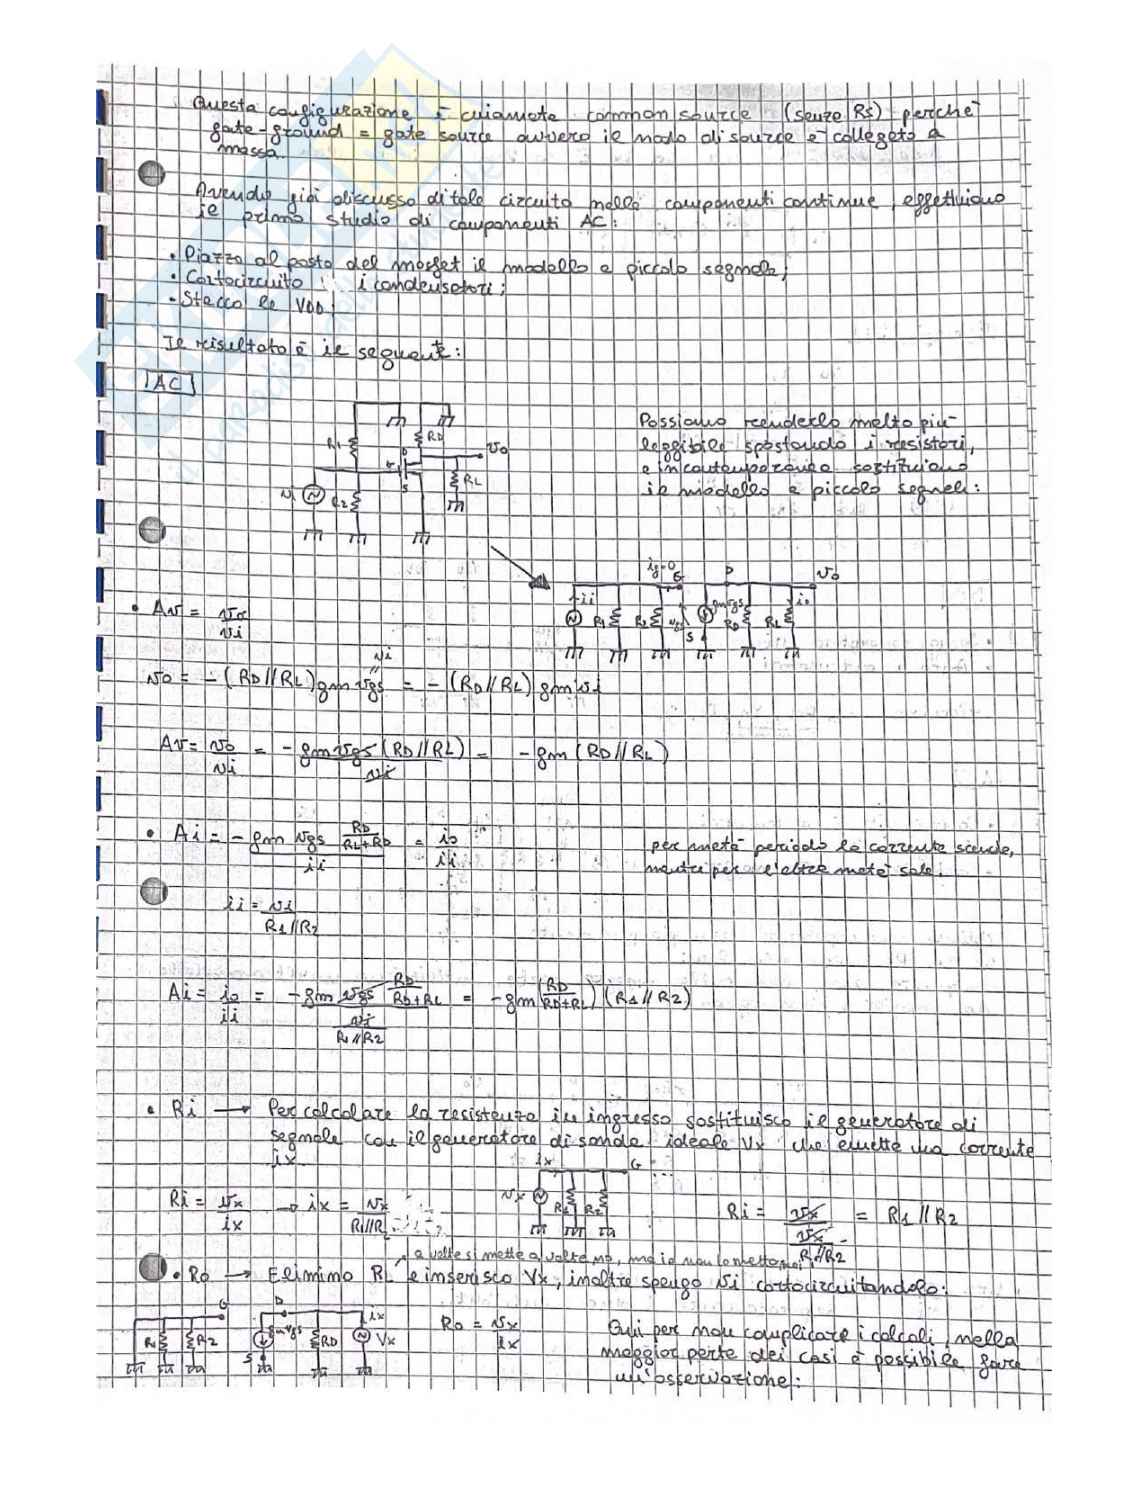 Questa configurazione è chiamata common source (senza Rs) perchè
gate-ground = gate source ovvero il nodo di source è collegato a
massa.
Avendo già discusso di tale circuito nelle componenti continue, effettuiamo
il primo studio di componenti AC:
• Piazzo al posto del mosfet il modello a piccolo segnale;
• Cortocircuito i condensatori;
• Stacco la VDD;
Il risultato è il seguente:
AC
R1 RD vo
G D S RL
vi R2
Possiamo renderlo molto più
leggibile spostando i resistori,
e in contemporanea sostituiamo
il modello a piccolo segnali:
ig=0 G D vo
ii R1 R2 vgs gmvgs RD RL io
S
• Av = vo/vi
vi
vo = -(RD//RL) gm vgs = -(RD//RL) gm vi
Av = vo/vi = -gm vgs (RD//RL)/vi = -gm (RD//RL)
• Ai = -gm vgs RD/(RL+RD) / ii = io/ii
per metà periodo la corrente scende,
mentre per l'altra metà sale.
ii = vi/(R1//R2)
Ai = io/ii = -gm vgs RD/(RD+RL) / (vi/(R1//R2)) = -gm (RD/(RD+RL)) (R1//R2)
• Ri → Per calcolare la resistenza in ingresso sostituisco il generatore di
segnale con il generatore di sonda ideale Vx che emette una corrente
ix
ix G ...
vx R1 R2
Ri = vx/ix → ix = vx/(R1//R2)
Ri = vx/(vx/(R1//R2)) = R1//R2
a volte si mette a volte no, ma io non lo metto mai
• Ro → Elimino RL e inserisco Vx, inoltre spengo vi cortocircuitandolo:
G D ix
R1 R2 gmvgs RD Vx
S
Ro = vx/ix
Qui per non complicare i calcoli, nella
maggior parte dei casi è possibile fare
un'osservazione: